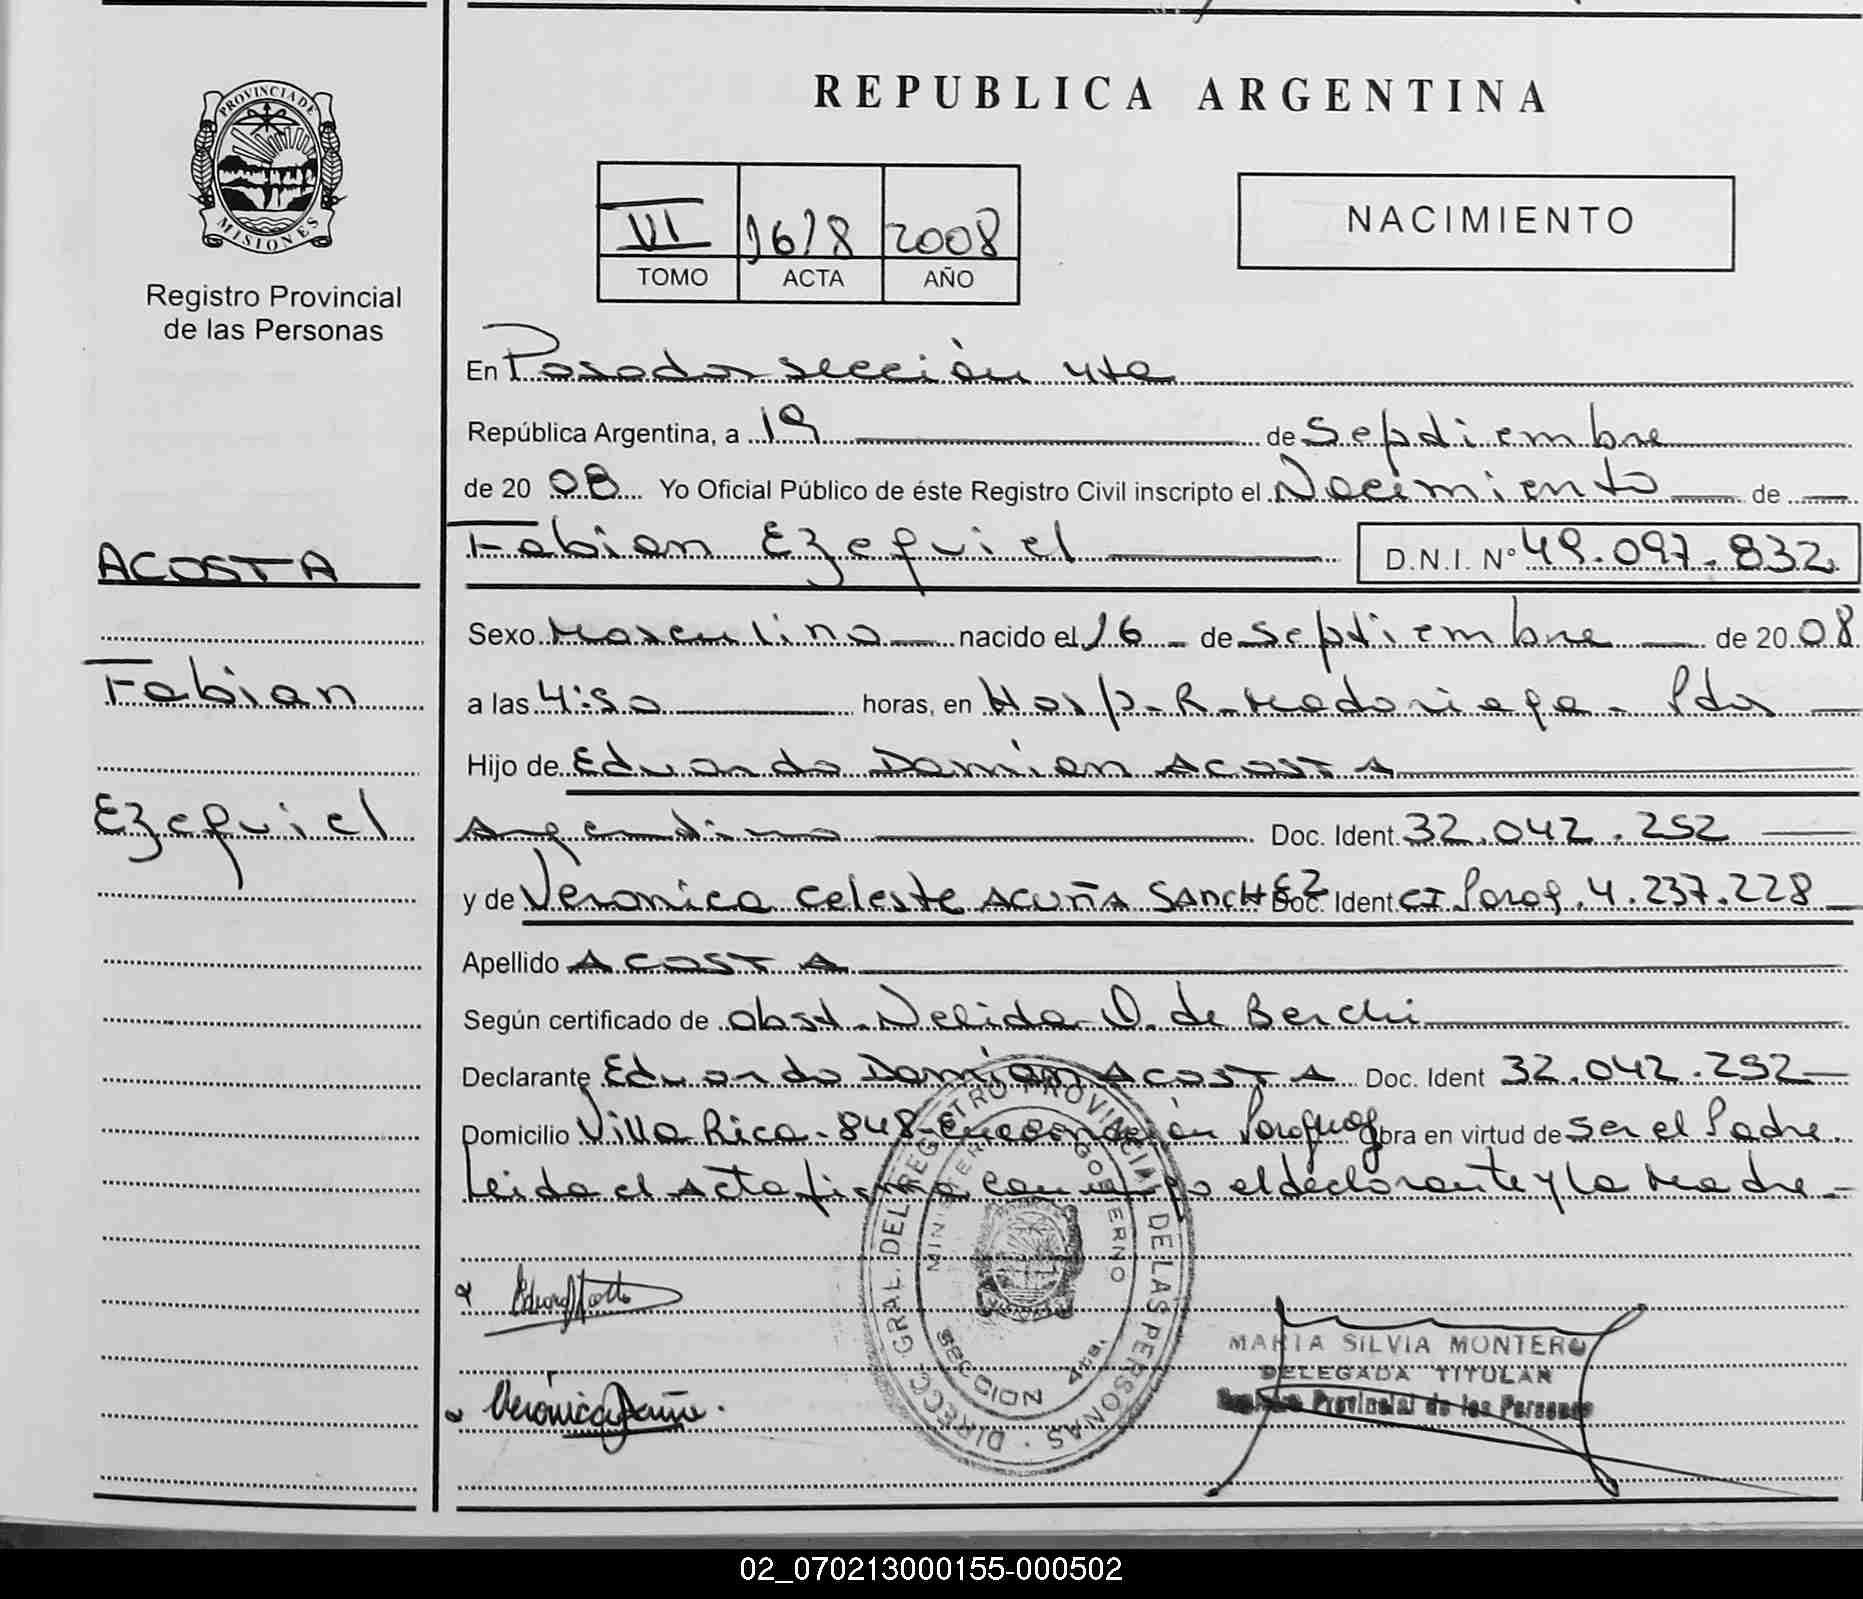 REPUBLICA ARGENTINA
PROVINCIA DE MISIONES
Registro Provincial
de las Personas
VI 1618 2008
TOMO ACTA AÑO
NACIMIENTO
En Posadas sección 4ta
República Argentina, a 19 de Septiembre
de 20 08 Yo Oficial Público de éste Registro Civil inscripto el Nacimiento de
Fabian Ezequiel D.N.I. N° 49.097.832
ACOSTA
Fabian
Ezequiel
Sexo Masculino nacido el 16 de Septiembre de 20 08
a las 4:50 horas, en Hosp. R. Madariaga - Pdas
Hijo de Eduardo Damian ACOSTA
Argentino Doc. Ident. 32.042.252
y de Veronica Celeste ACUÑA SANCHEZ Doc. Ident CI Parag. 4.237.228
Apellido ACOSTA
Según certificado de obst. Nelida O. de Berchi
Declarante Eduardo Damian ACOSTA Doc. Ident 32.042.252
Domicilio Villa Rica - 848 - Encarnación Paraguay Obra en virtud de ser el Padre.
Leida el Acta firma conmigo el declarante y la Madre.-
DIRECC. GRAL. DEL REGISTRO PROVINCIAL DE LAS PERSONAS
MINISTERIO GOBIERNO
SECCION 4ta.
Veronica Acuña.
MARIA SILVIA MONTERO
DELEGADA TITULAR
Registro Provincial de las Personas
02_070213000155-000502